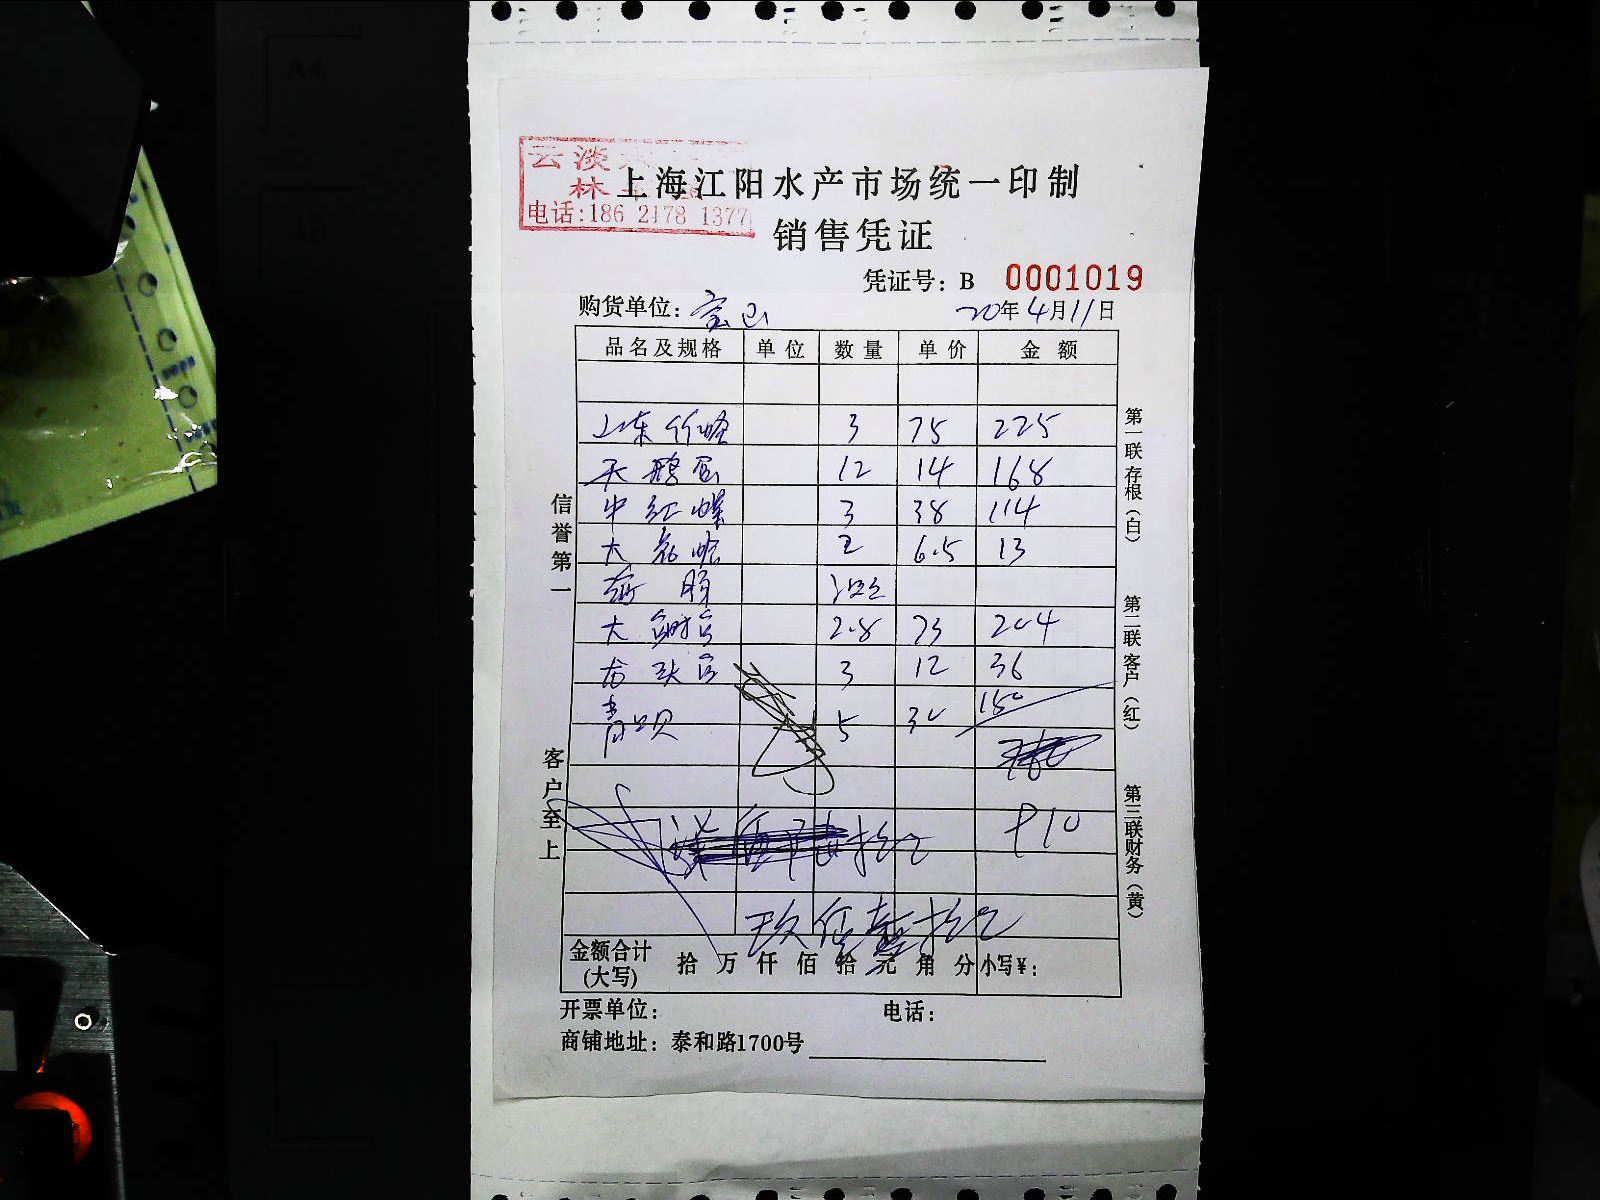 云淡
林
电话:186 2178 1377
上海江阳水产市场统一印制
销售凭证
凭证号: B 0001019
购货单位: 宝山 20年4月11日
品名及规格 单位 数量 单价 金额
山东竹蛏 3 75 225
天鹅蛋 12 14 168
中红蝶 3 38 114
大花蛤 2 6.5 13
2.8 73 204
龙头 3 12 36
青口贝 5 30 150
910
拾元
玖佰壹拾元
金额合计(大写) 拾 万 仟 佰 拾 元 角 分 小写¥:
开票单位: 电话:
商铺地址: 泰和路1700号
信誉第一
客户至上
第一联 存根(白)
第二联 客户(红)
第三联 财务(黄)